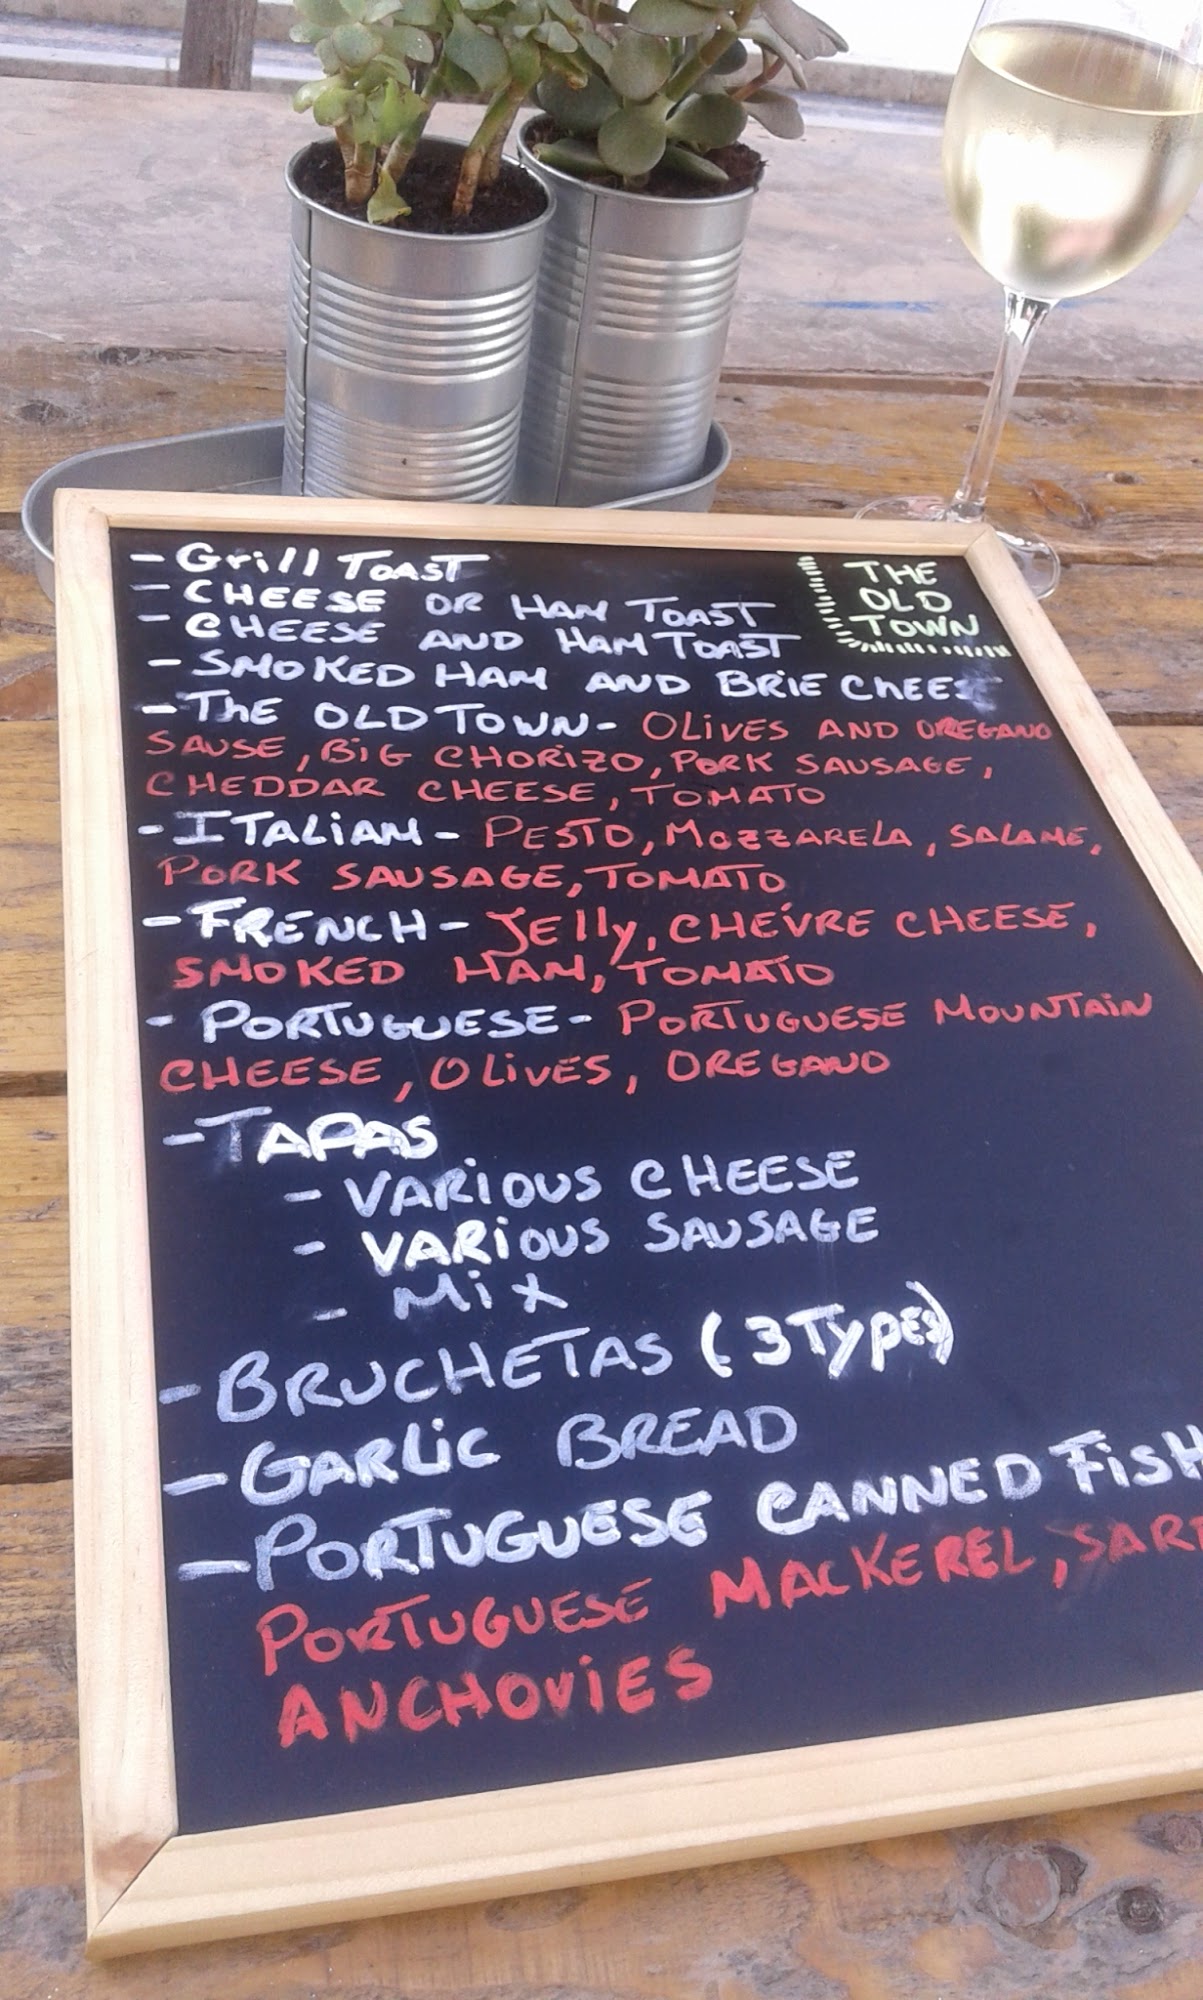 - Grill TOAST
- CHEESE OR HAM TOAST
- CHEESE AND HAM TOAST
- SMOKED HAM AND BRIE CHEESE
- THE OLD TOWN - OLIVES AND OREGANO
SAUSE, BIG CHORIZO, PORK SAUSAGE,
CHEDDAR CHEESE, TOMATO
- ITALIAN - PESTO, MOZZARELA, SALAME,
PORK SAUSAGE, TOMATO
- FRENCH - JElly, CHÉVRE CHEESE,
SMOKED HAM, TOMATO
- PORTUGUESE - PORTUGUESE MOUNTAIN
CHEESE, OLIVES, OREGANO
- TAPAS
- VARIOUS CHEESE
- VARIOUS SAUSAGE
- Mix
- BRUCHETAS (3 Types)
- GARLIC BREAD
- PORTUGUESE CANNED FISH
PORTUGUESE MACKEREL,
ANCHOVIES
THE
OLD
TOWN